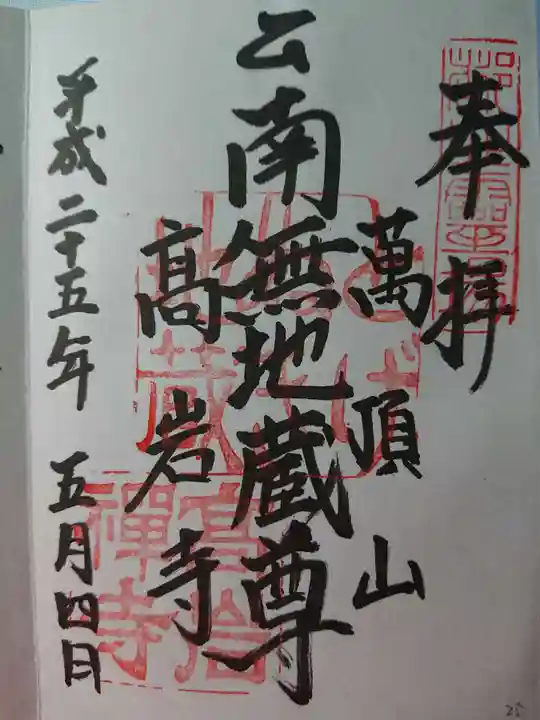 奉拝
萬頂山
南無地蔵尊
高岩寺
平成二十五年 五月四日
高岩
禅寺